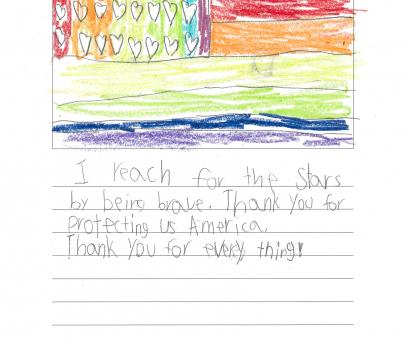 I reach for the Stars
by being brave. Thank you for
protecting us America.
Thank you for every thing!